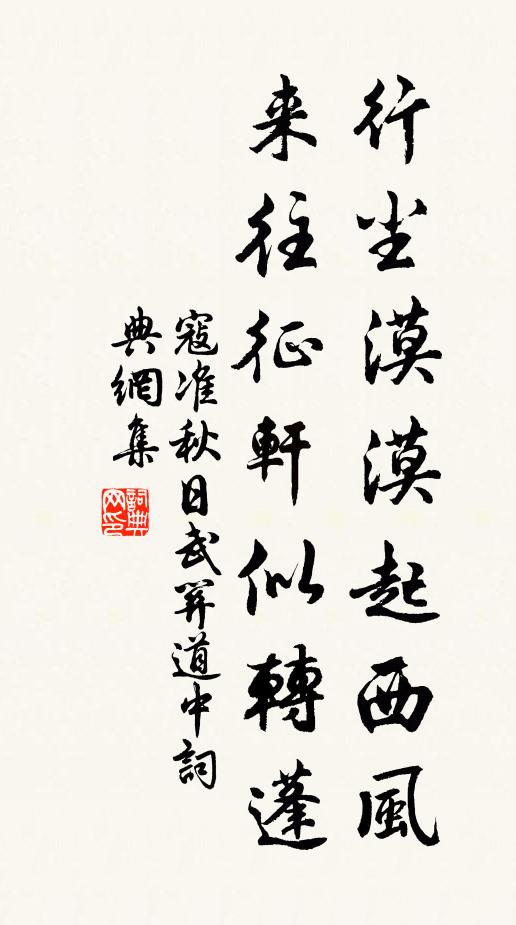 行尘漠漠起西風
来往征軒似轉蓬
寇准秋日武関道中詞
典網集
詞典
网印